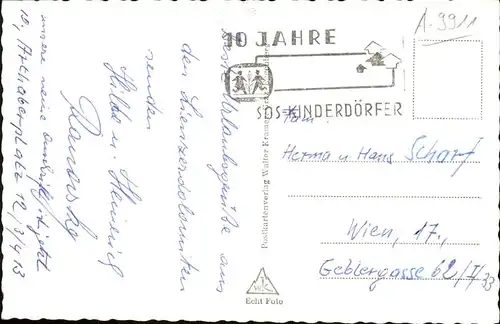 A-9911
10 JAHRE
SOS-KINDERDÖRFER
Fam.
Herma u. Hans Scharf
Wien, 17.,
Geblergasse 62/7/33
Postkartenverlag Walter
Echt Foto
Urlaubsgrüße aus
den Lienzerdolomiten
senden
Hilde u. Heinrich
unsere neue Anschrift ist jetzt
10, Arthaberplatz 12/3/4/13